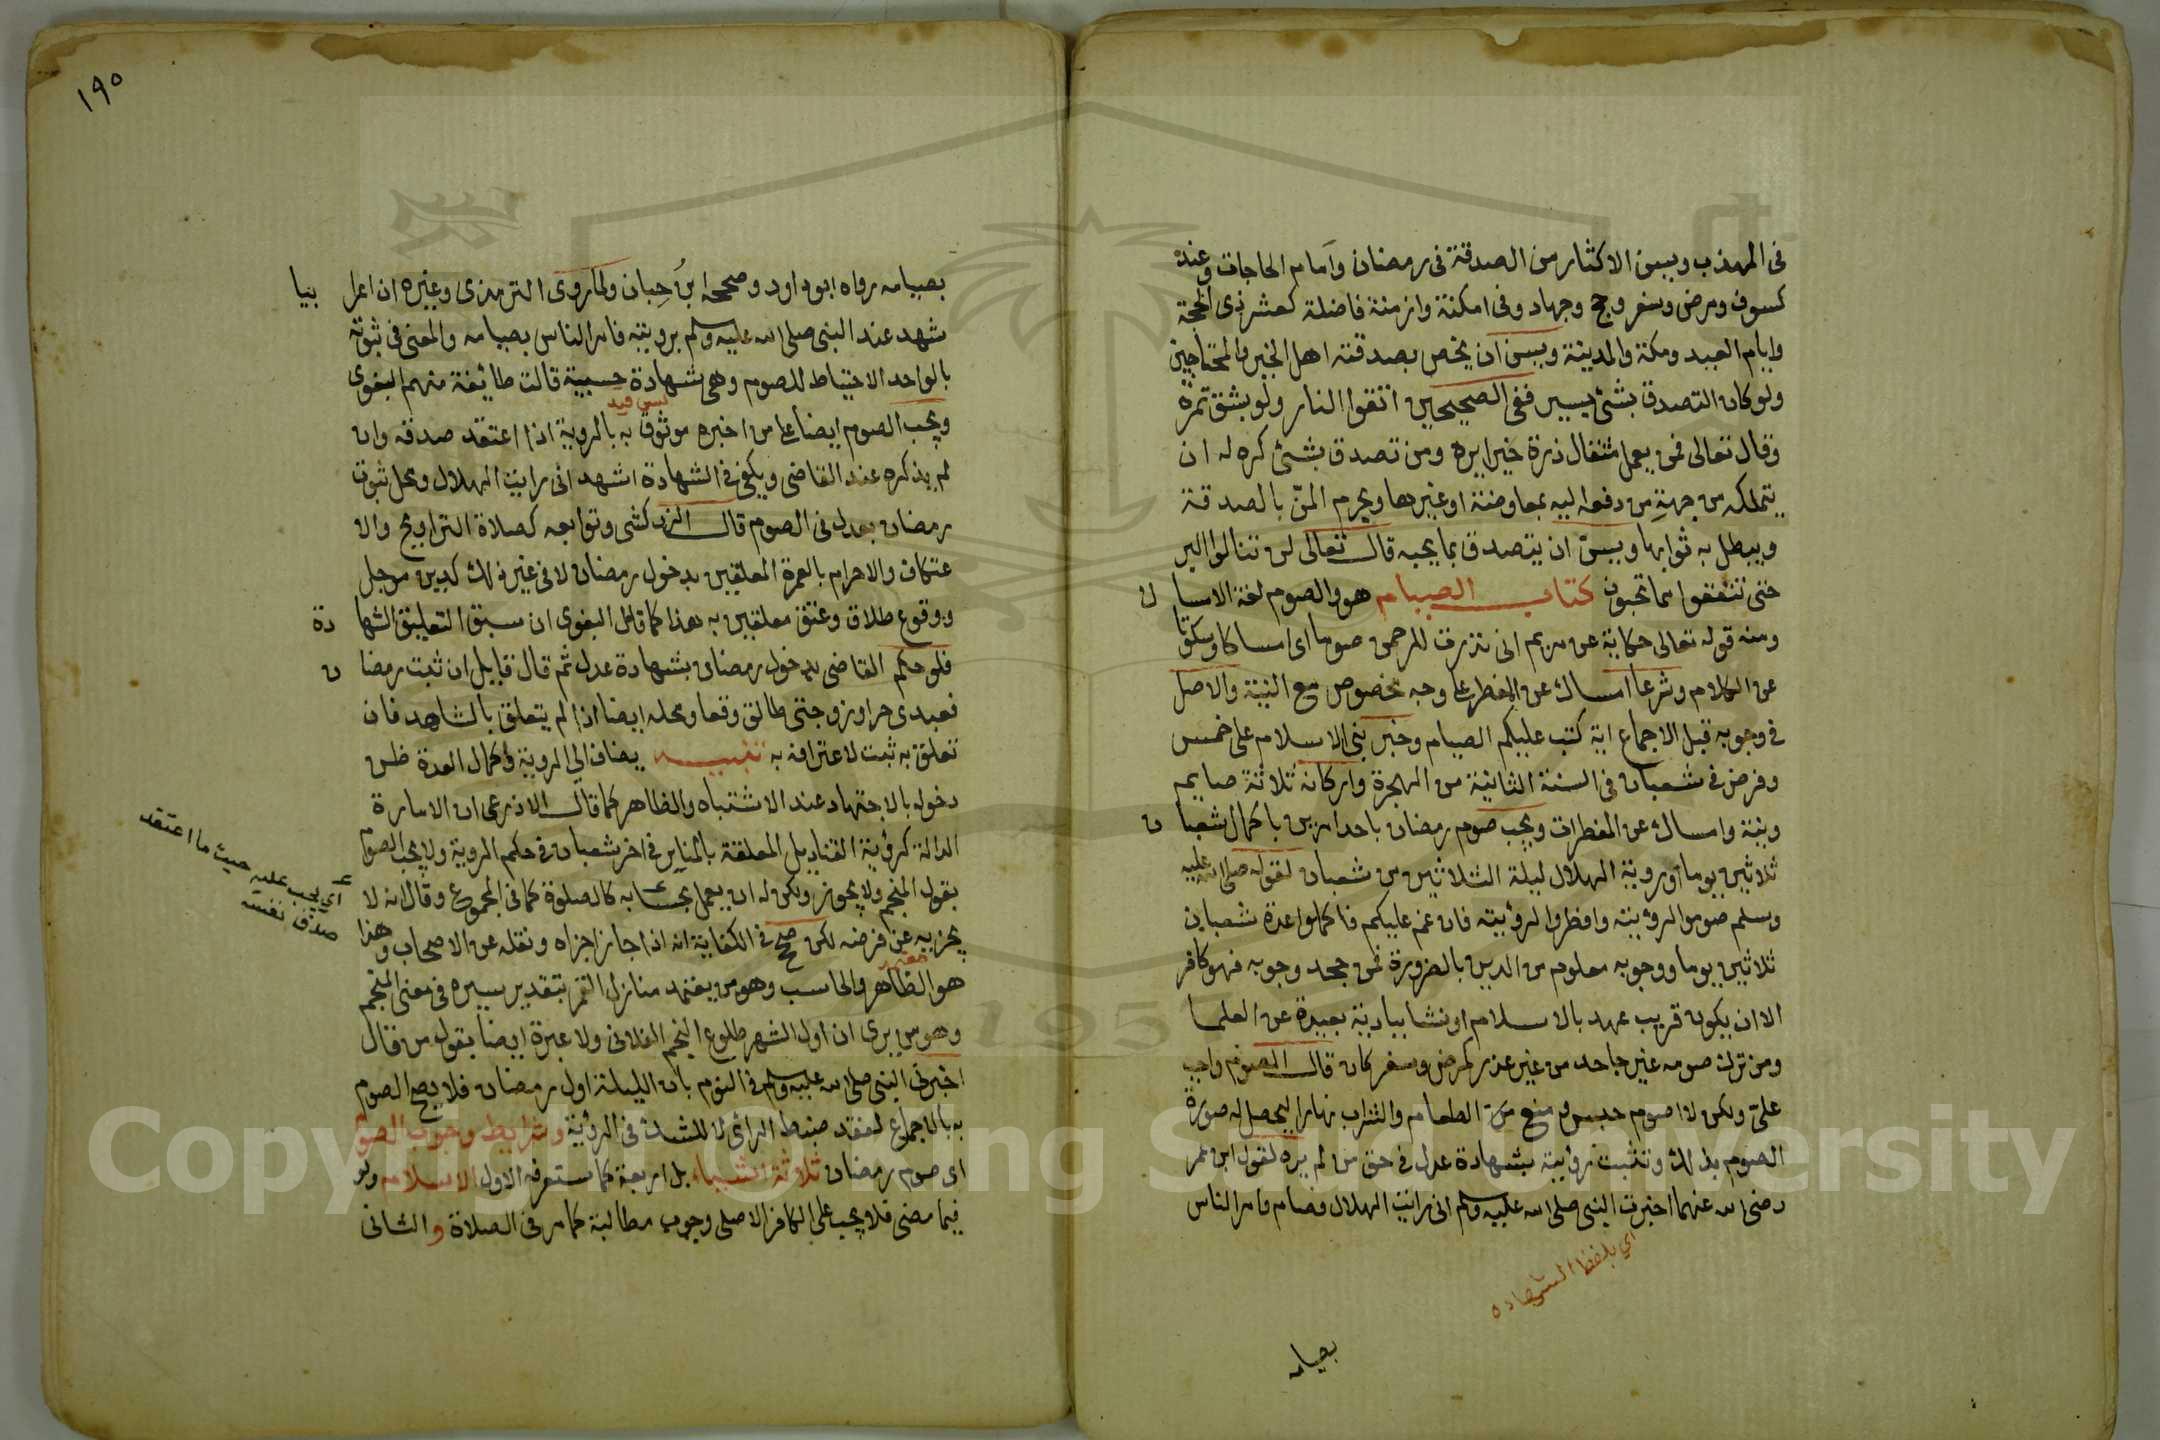 في المهذب ويسن الاكثار من الصدقة في رمضان وأمام الحاجات وعند
كسوف ومرض وسفر وحج وجهاد وفي امكنة وازمنة فاضلة كعشر ذي الحجة
وايام العيد ومكة والمدينة ويسن ان يخص بصدقته اهل الخير والمحتاجين
ولو كان التصدق بشئ يسير ففي الصحيحين اتقوا النار ولو بشق تمرة
وقال تعالى فمن يعمل مثقال ذرة خيرا يره ومن تصدق بشئ كره له ان
يتملكه من جهة من دفعه اليه بمعاوضة او غيرها ويحرم المن بالصدقة
ويبطل به ثوابها ويسن ان يتصدق بما يحبه قال تعالى لن تنالوا البر
حتى تنفقوا مما تحبون كتاب الصيام هو والصوم لغة الامساك
ومنه قوله تعالى حكاية عن مريم اني نذرت للرحمن صوما اي امساكا وسكوتا
عن الكلام وشرعا امساك عن المفطر على وجه مخصوص مع النية والاصل
في وجوبه قبل الاجماع اية كتب عليكم الصيام وخبر بني الاسلام على خمس
وفرض في شعبان في السنة الثانية من الهجرة واركانه ثلاثة صايم
ونية وامساك عن المفطرات ويجب صوم رمضان باحد امرين باكمال شعبان
ثلاثين يوما او روية الهلال ليلة الثلاثين من شعبان لقوله صلى الله عليه
وسلم صوموا لرؤيته وافطروا لرؤيته فان غم عليكم فاكملوا عدة شعبان
ثلاثين يوما ووجوبه معلوم من الدين بالضرورة فمن جحد وجوبه فهو كافر
الا ان يكون قريب عهد بالاسلام او نشا ببادية بعيدة عن العلما
ومن ترك صومه غير جاحد من غير عذر كمرض وسفر كان قال الصوم واجب
علي ولكن لا اصوم حبس ومنع من الطعام والشراب نهارا ليحصل له صورة
الصوم بذلك وتثبت رؤيته بشهادة عدل في حق من لم يره لقول ابن عمر
رضي الله عنهما اخبرت النبي صلى الله عليه وسلم اني رايت الهلال فصام وامر الناس
اي بلفظ الشهاده
بصيامه
١٩٥
بصيامه رواه ابو داود وصححه ابن حبان ولما روى الترمذي وغيره ان اعرابيا
شهد عند النبي صلى الله عليه وسلم برويته فامر الناس بصيامه والمعنى في ثبوته
بالواحد الاحتياط للصوم وهي شهادة حسبة قالت طائفة منهم البغوي
ليس قيد
ويجب الصوم ايضا على من اخبره موثوق به بالروية اذا اعتقد صدقه وان
لم يذكره عند القاضي ويكفي في الشهادة اشهد اني رايت الهلال ومحل ثبوت
رمضان بعدل في الصوم قال الزركشي وتوابعه كصلاة التراويح والا
عتكاف والاحرام بالعمرة المعلقين بدخول رمضان لا في غير ذلك كدين موجل
ووقوع طلاق وعتق معلقين به هذا كما قال البغوي ان سبق التعليق الشهادة
فلو حكم القاضي بدخول رمضان بشهادة عدل ثم قال قايل ان ثبت رمضان
فعبدي حر او زوجتي طالق وقعا ومحله ايضا اذا لم يتعلق بالشاهد فان
تعلق به ثبت لاعترافه به تنبيه يضاف الى الروية واكمال العدة ظن
دخوله بالاجتهاد عند الاشتباه والظاهر كما قال الاذرعي ان الامارة
الدالة كرؤية القناديل المعلقة بالمناير في اخر شعبان في حكم الروية ولا يجب الصوم
بقول المنجم ولا يجوز ولكن له ان يعمل بحسابه كالصلوة كما في المجموع وقال انه لا
يجزيه عن فرضه لكن صحح في الكفاية انه اذا جاز اجزاه ونقله عن الاصحاب وهذا
معتمد
هو الظاهر والحاسب وهو من يعتمد منازل القمر بتقدير سيره في معنى المنجم
وهو من يرى ان اول الشهر طلوع النجم الفلاني ولا عبرة ايضا بقول من قال
اخبرني النبي صلى الله عليه وسلم في النوم بان الليلة اول رمضان فلا يصح الصوم
به بالاجماع لفقد ضبط الرائي لا للشك في الرؤية وشرايط وجوب الصوم
اي صوم رمضان ثلاثة اشياء بل اربعة كما ستعرفه الاول الاسلام ولو
فيما مضى فلا يجب على الكافر الاصلي وجوب مطالبة كما مر في الصلاة والثاني
اي يجب عليه حيث ما اعتقد
صدق نفسه
Copyright © King Saud University
195